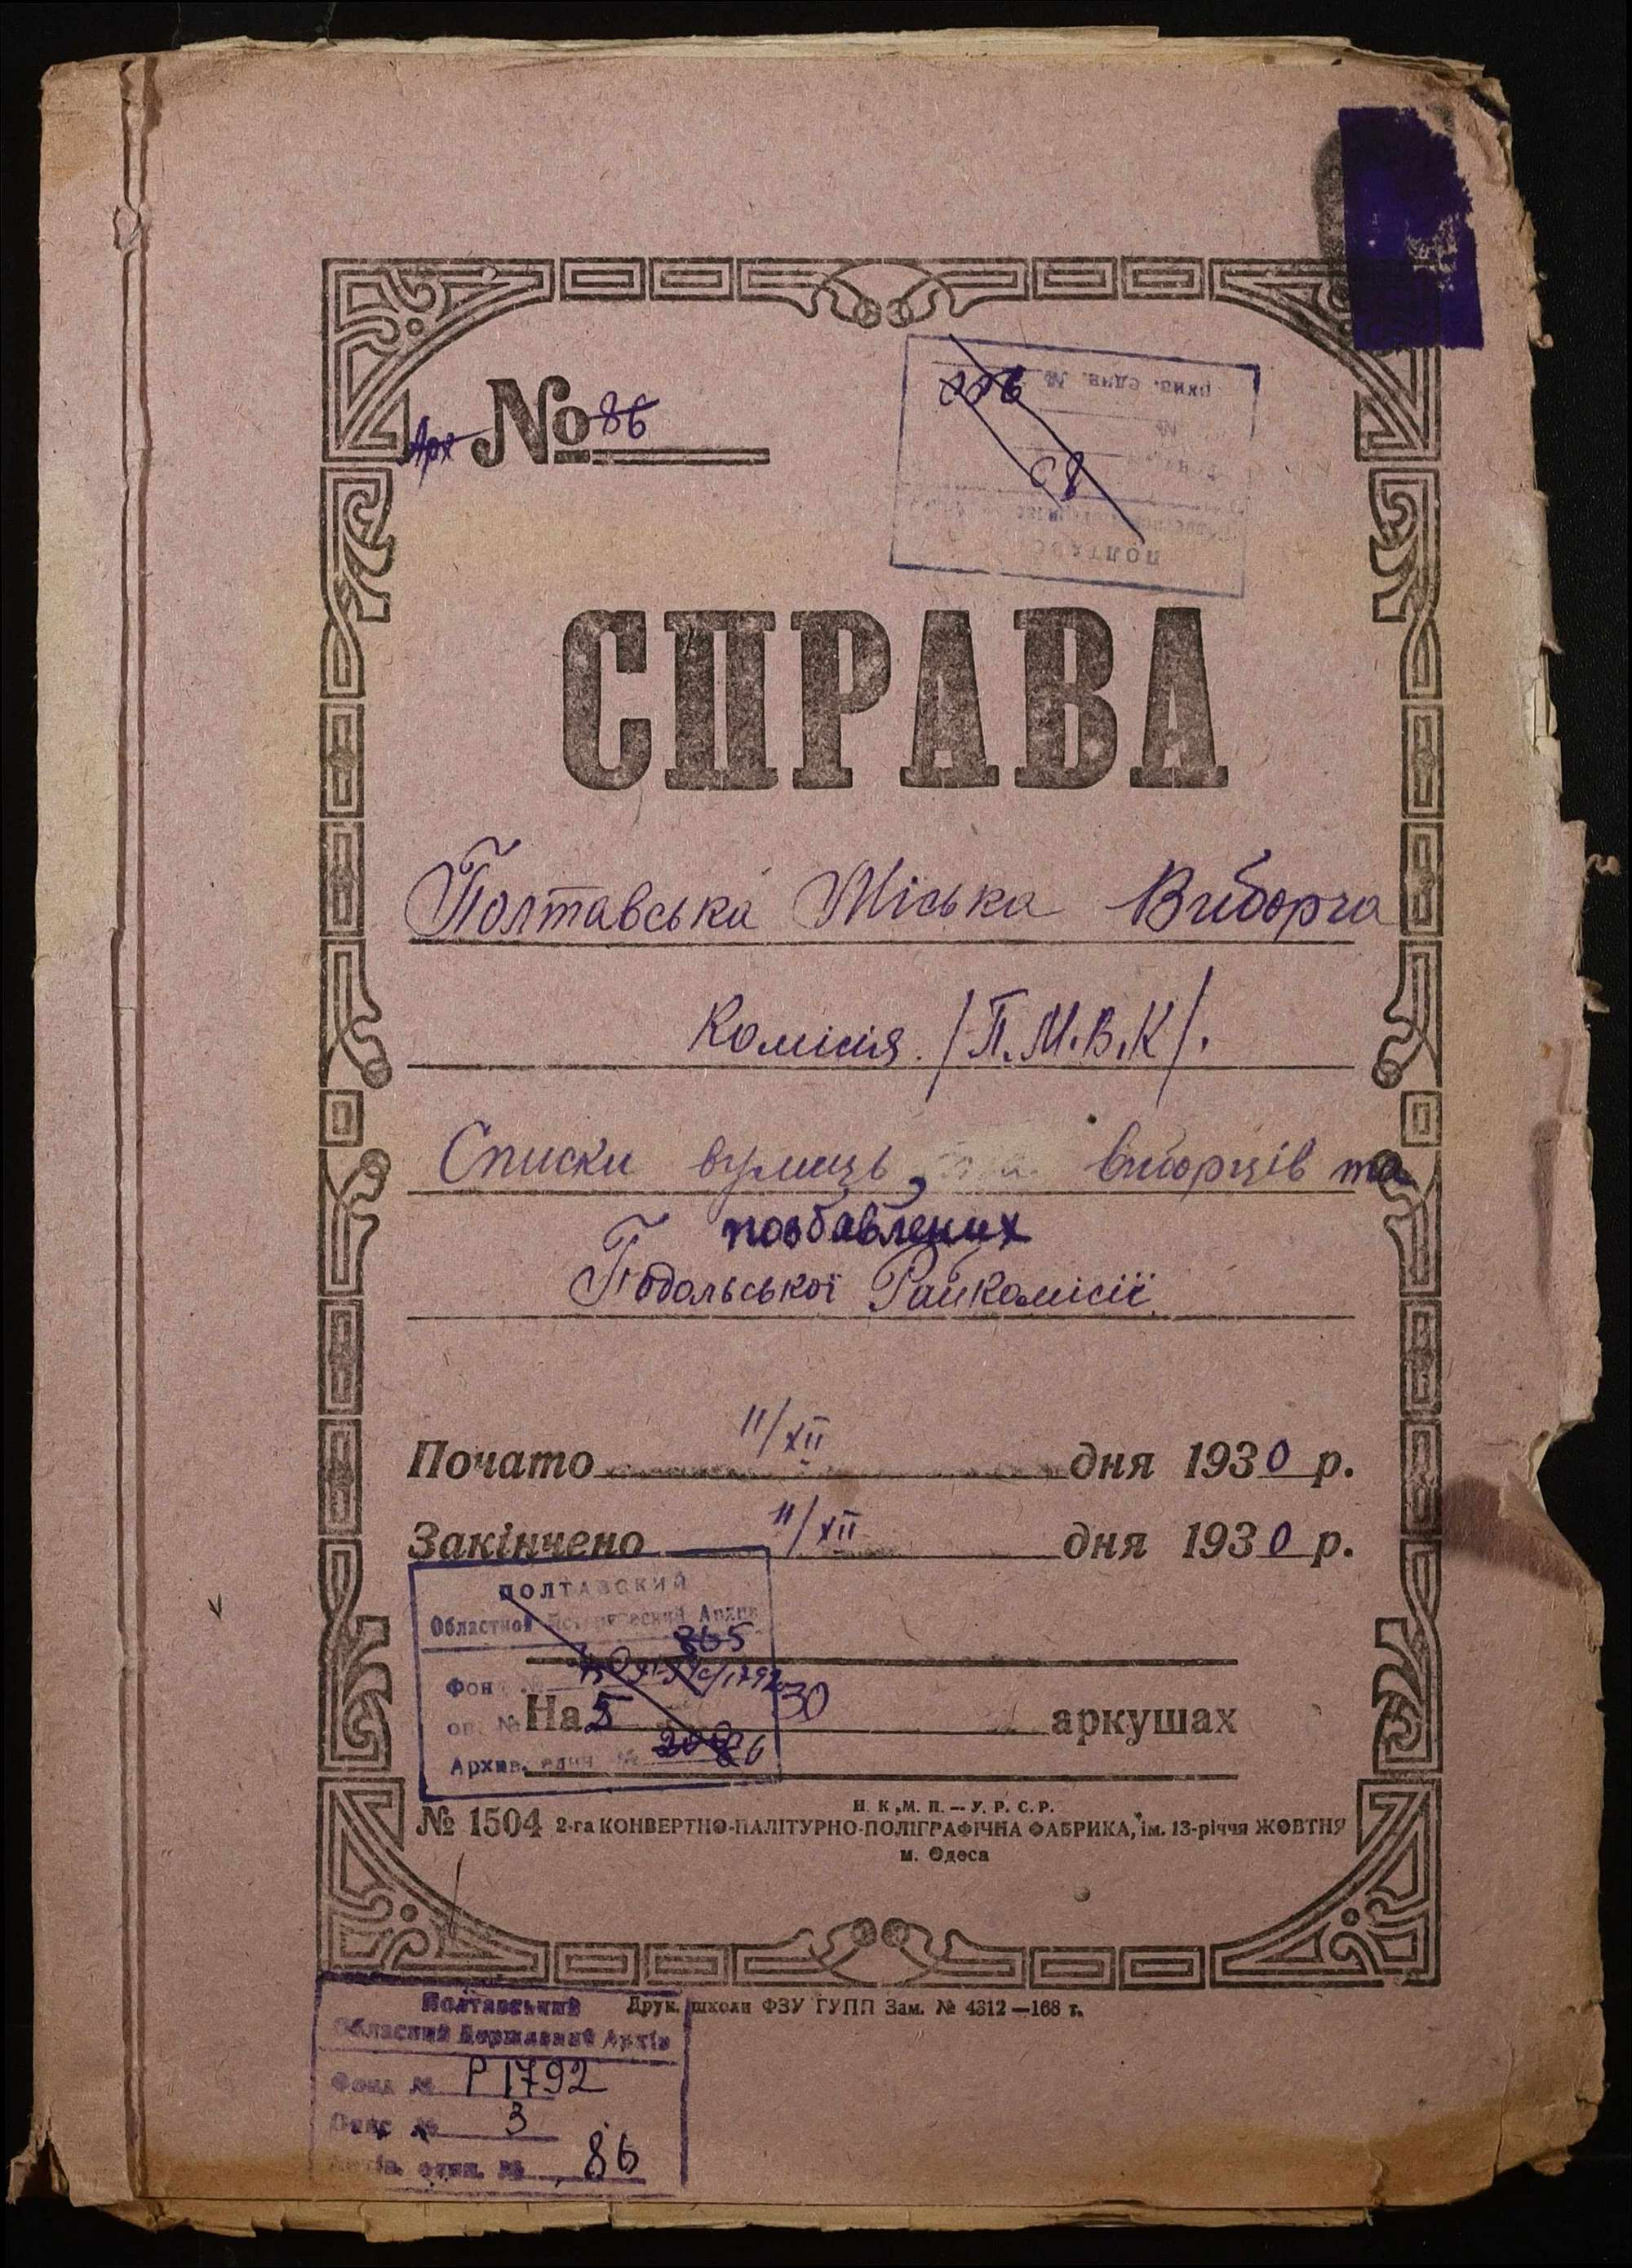 Арх № 86
206
68
СПРАВА
Полтавська Міська Виборча
Комісія. /П.М.В.К/.
Списки вулиць, виборців та
позбавлених
Подольської Райкомісії
Почато 11/XII дня 1930 р.
Закінчено 11/XII дня 1930 р.
ПОЛТАВСКИЙ
Областной Исторический Архив
265
Фон №
оп. №
На 5 30 аркушах
Архив. един № 86
Н. К. М. П. — У. Р. С. Р.
№ 1504 2-га КОНВЕРТНО-ПАЛІТУРНО-ПОЛІГРАФІЧНА ФАБРИКА, ім. 13-річчя ЖОВТНЯ
м. Одеса
Друк. школи ФЗУ ГУПП Зам. № 4312—168 т.
Полтавський
Обласний Державний Архів
Фонд № Р1792
Опис № 3
Архів. один. № 86